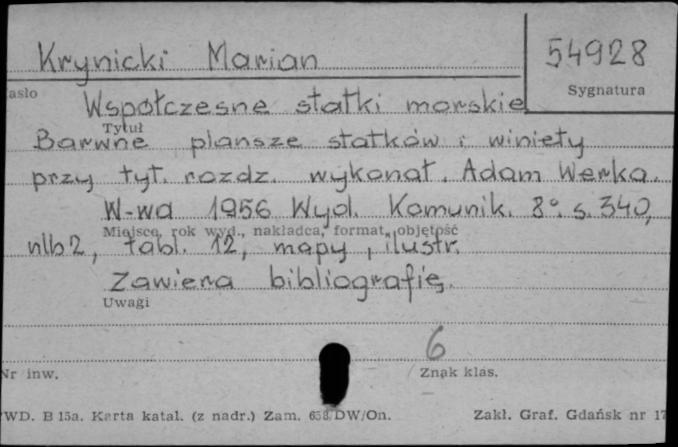 Krynicki Marian
54928
asło
Sygnatura
Współczesne statki morskie
Tytuł
Barwne plansze statków i winiety
przy tyt. rozdz. wykonał. Adam Werka.
W-wa 1956 Wyd. Komunik. 8°. s. 340,
Miejsce, rok wyd., nakładca, format, objętość
nlb 2, tabl. 12, mapy, ilustr.
Zawiera bibliografię.
Uwagi
6
Nr inw.
Znak klas.
WD. B 15a. Karta katal. (z nadr.) Zam. 658/DW/On.
Zakł. Graf. Gdańsk nr 17